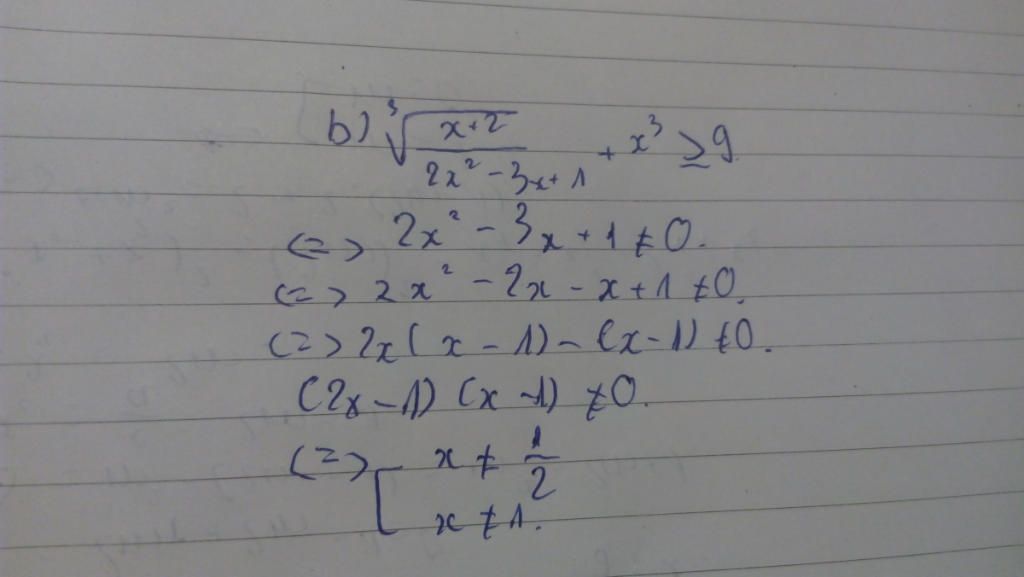 b) ∛((x+2)/(2x² - 3x + 1)) + x³ ≥ 9
<=> 2x² - 3x + 1 ≠ 0.
<=> 2x² - 2x - x + 1 ≠ 0.
<=> 2x(x - 1) - (x - 1) ≠ 0.
(2x - 1) (x - 1) ≠ 0.
<=> [ x ≠ 1/2
x ≠ 1.